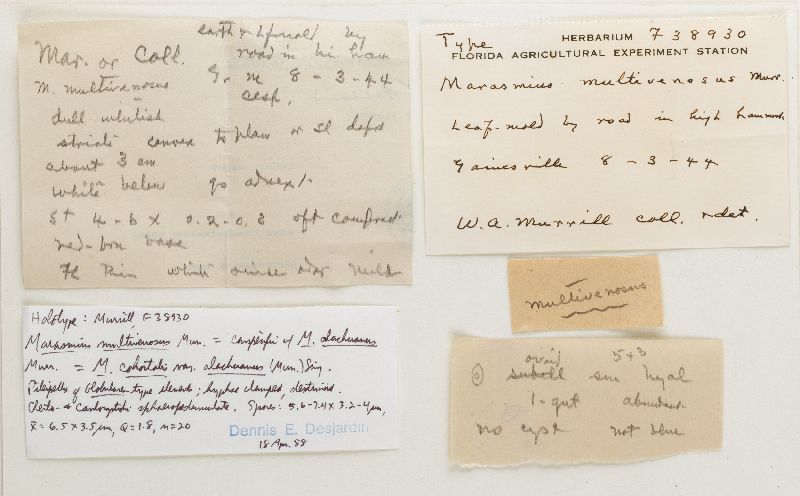 earth & lfmold by
Mar. or Coll. road in hi ham
M. multivenosus G. M 8-3-44
cesp.
dull whitish
striate convex to plane or sl depr
about 3 cm
white below gs adnex
St 4-6 x 0.2-0.3 oft compres
red-brn base
Fl thin white odor mild
Type HERBARIUM F38930
FLORIDA AGRICULTURAL EXPERIMENT STATION
Marasmius multivenosus Murr.
Leaf-mold by road in high hammock
Gainesville 8-3-44
W.A. Murrill coll. & det.
multivenosus
Holotype: Murrill, F38930
Marasmius multivenosus Murr. = conspecific w/ M. alachuanus
Murr. = M. cohortalis var. alachuanus (Murr.) Sing.
Pileipellis of Globulares-type elements; hyphae clamped, dextrinoid.
Cheilo- & Caulocystidia sphaeropedunculate. Spores: 5.6-7.4 x 3.2-4 µm,
x̄ = 6.5 x 3.5 µm, Q = 1.8, n = 20
Dennis E. Desjardin
18 Apr. 88
ovoid 5 x 3
subell sm hyal
1-gut abundant
no cyst not blue